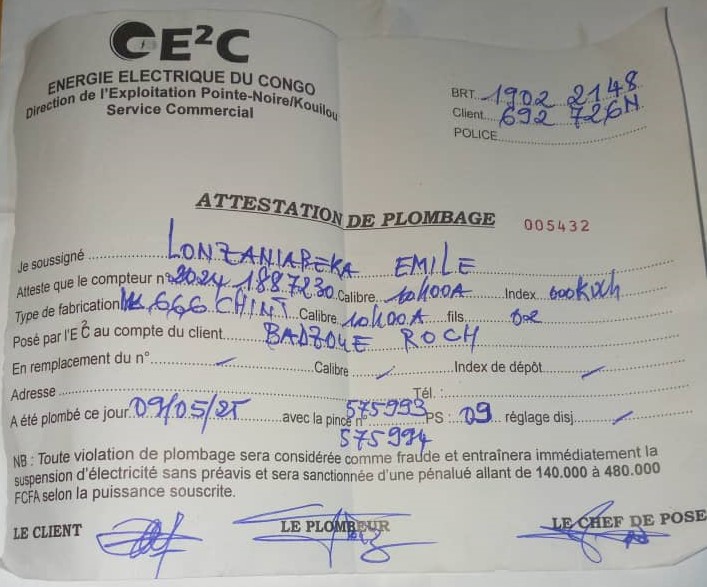 E²C
ENERGIE ELECTRIQUE DU CONGO
Direction de l'Exploitation Pointe-Noire/Kouilou
Service Commercial
BRT. 1902 2148
Client 692 726N
POLICE
ATTESTATION DE PLOMBAGE 005432
Je soussigné LONZANIABEKA EMILE
Atteste que le compteur n° 2024 1887230 Calibre Index
Type de fabrication 666 CHINT Calibre fils
Posé par l'E²C au compte du client BADZOUE ROCH
En remplacement du n° Calibre Index de dépôt
Adresse Tél. :
A été plombé ce jour 09/05/25 avec la pince n° 575993 PS : 09 réglage disj.
575994
NB : Toute violation de plombage sera considérée comme fraude et entraînera immédiatement la
suspension d'électricité sans préavis et sera sanctionnée d'une pénalué allant de 140.000 à 480.000
FCFA selon la puissance souscrite.
LE CLIENT LE PLOMBEUR LE CHEF DE POSE